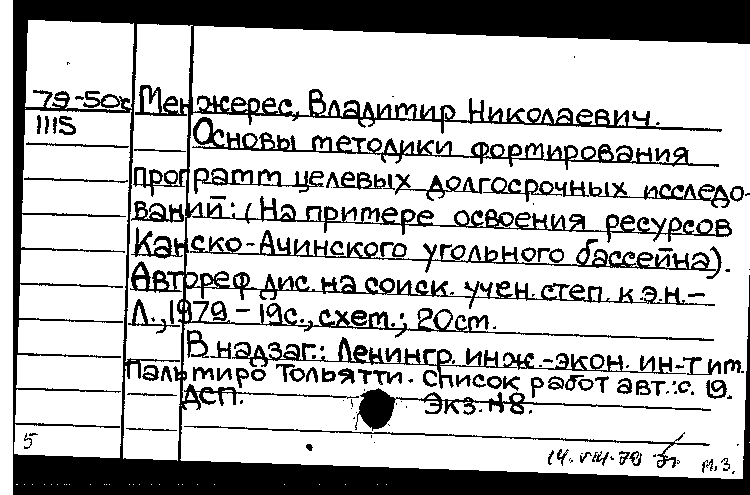 79-50к Менжерес, Владимир Николаевич.
1115 Основы методики формирования
программ целевых долгосрочных исследо-
ваний: (На примере освоения ресурсов
Канско-Ачинского угольного бассейна).
Автореф дис. на соиск. учен. степ. к.э.н.-
Л., 1979 - 19с., схем.; 20см.
В надзаг.: Ленингр. инж.-экон. ин-т им.
Пальмиро Тольятти. Список работ авт.: с. 19.
ДСП. Экз. №8.
5 14.VIII.79 м.з.